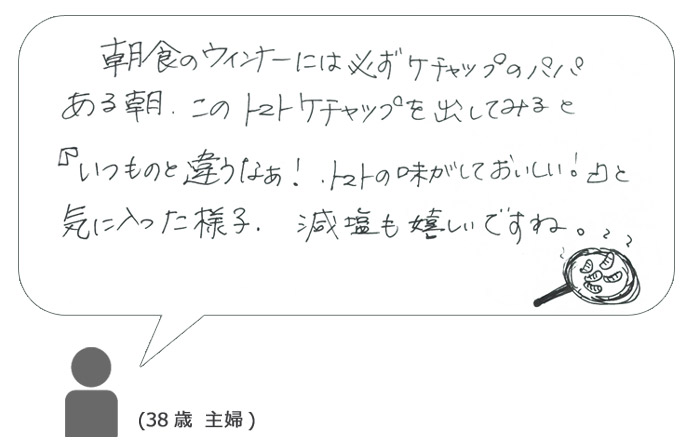 朝食のウィンナーには必ずケチャップのパパ
ある朝.このトマトケチャップを出してみると
『いつものと違うなぁ!.トマトの味がしておいしい!』と
気に入った様子. 減塩も嬉しいですね。
(38歳 主婦)